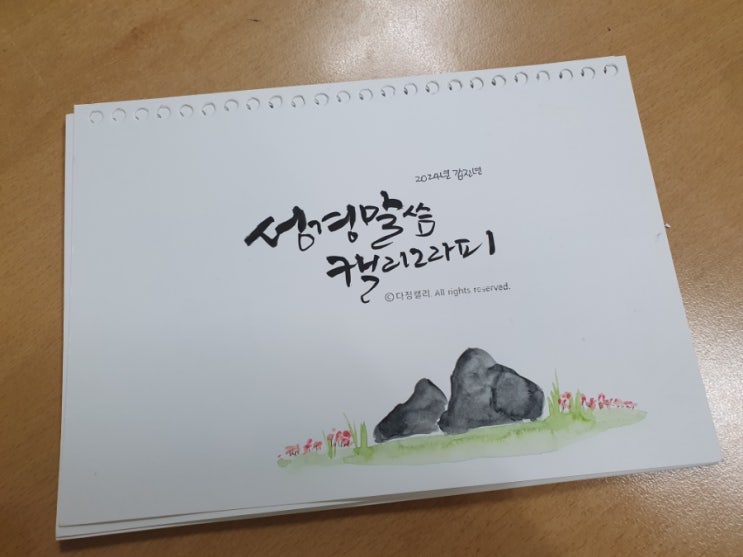 2024년 김진연
성경말씀
캘리그라피
©다정캘리. All rights reserved.